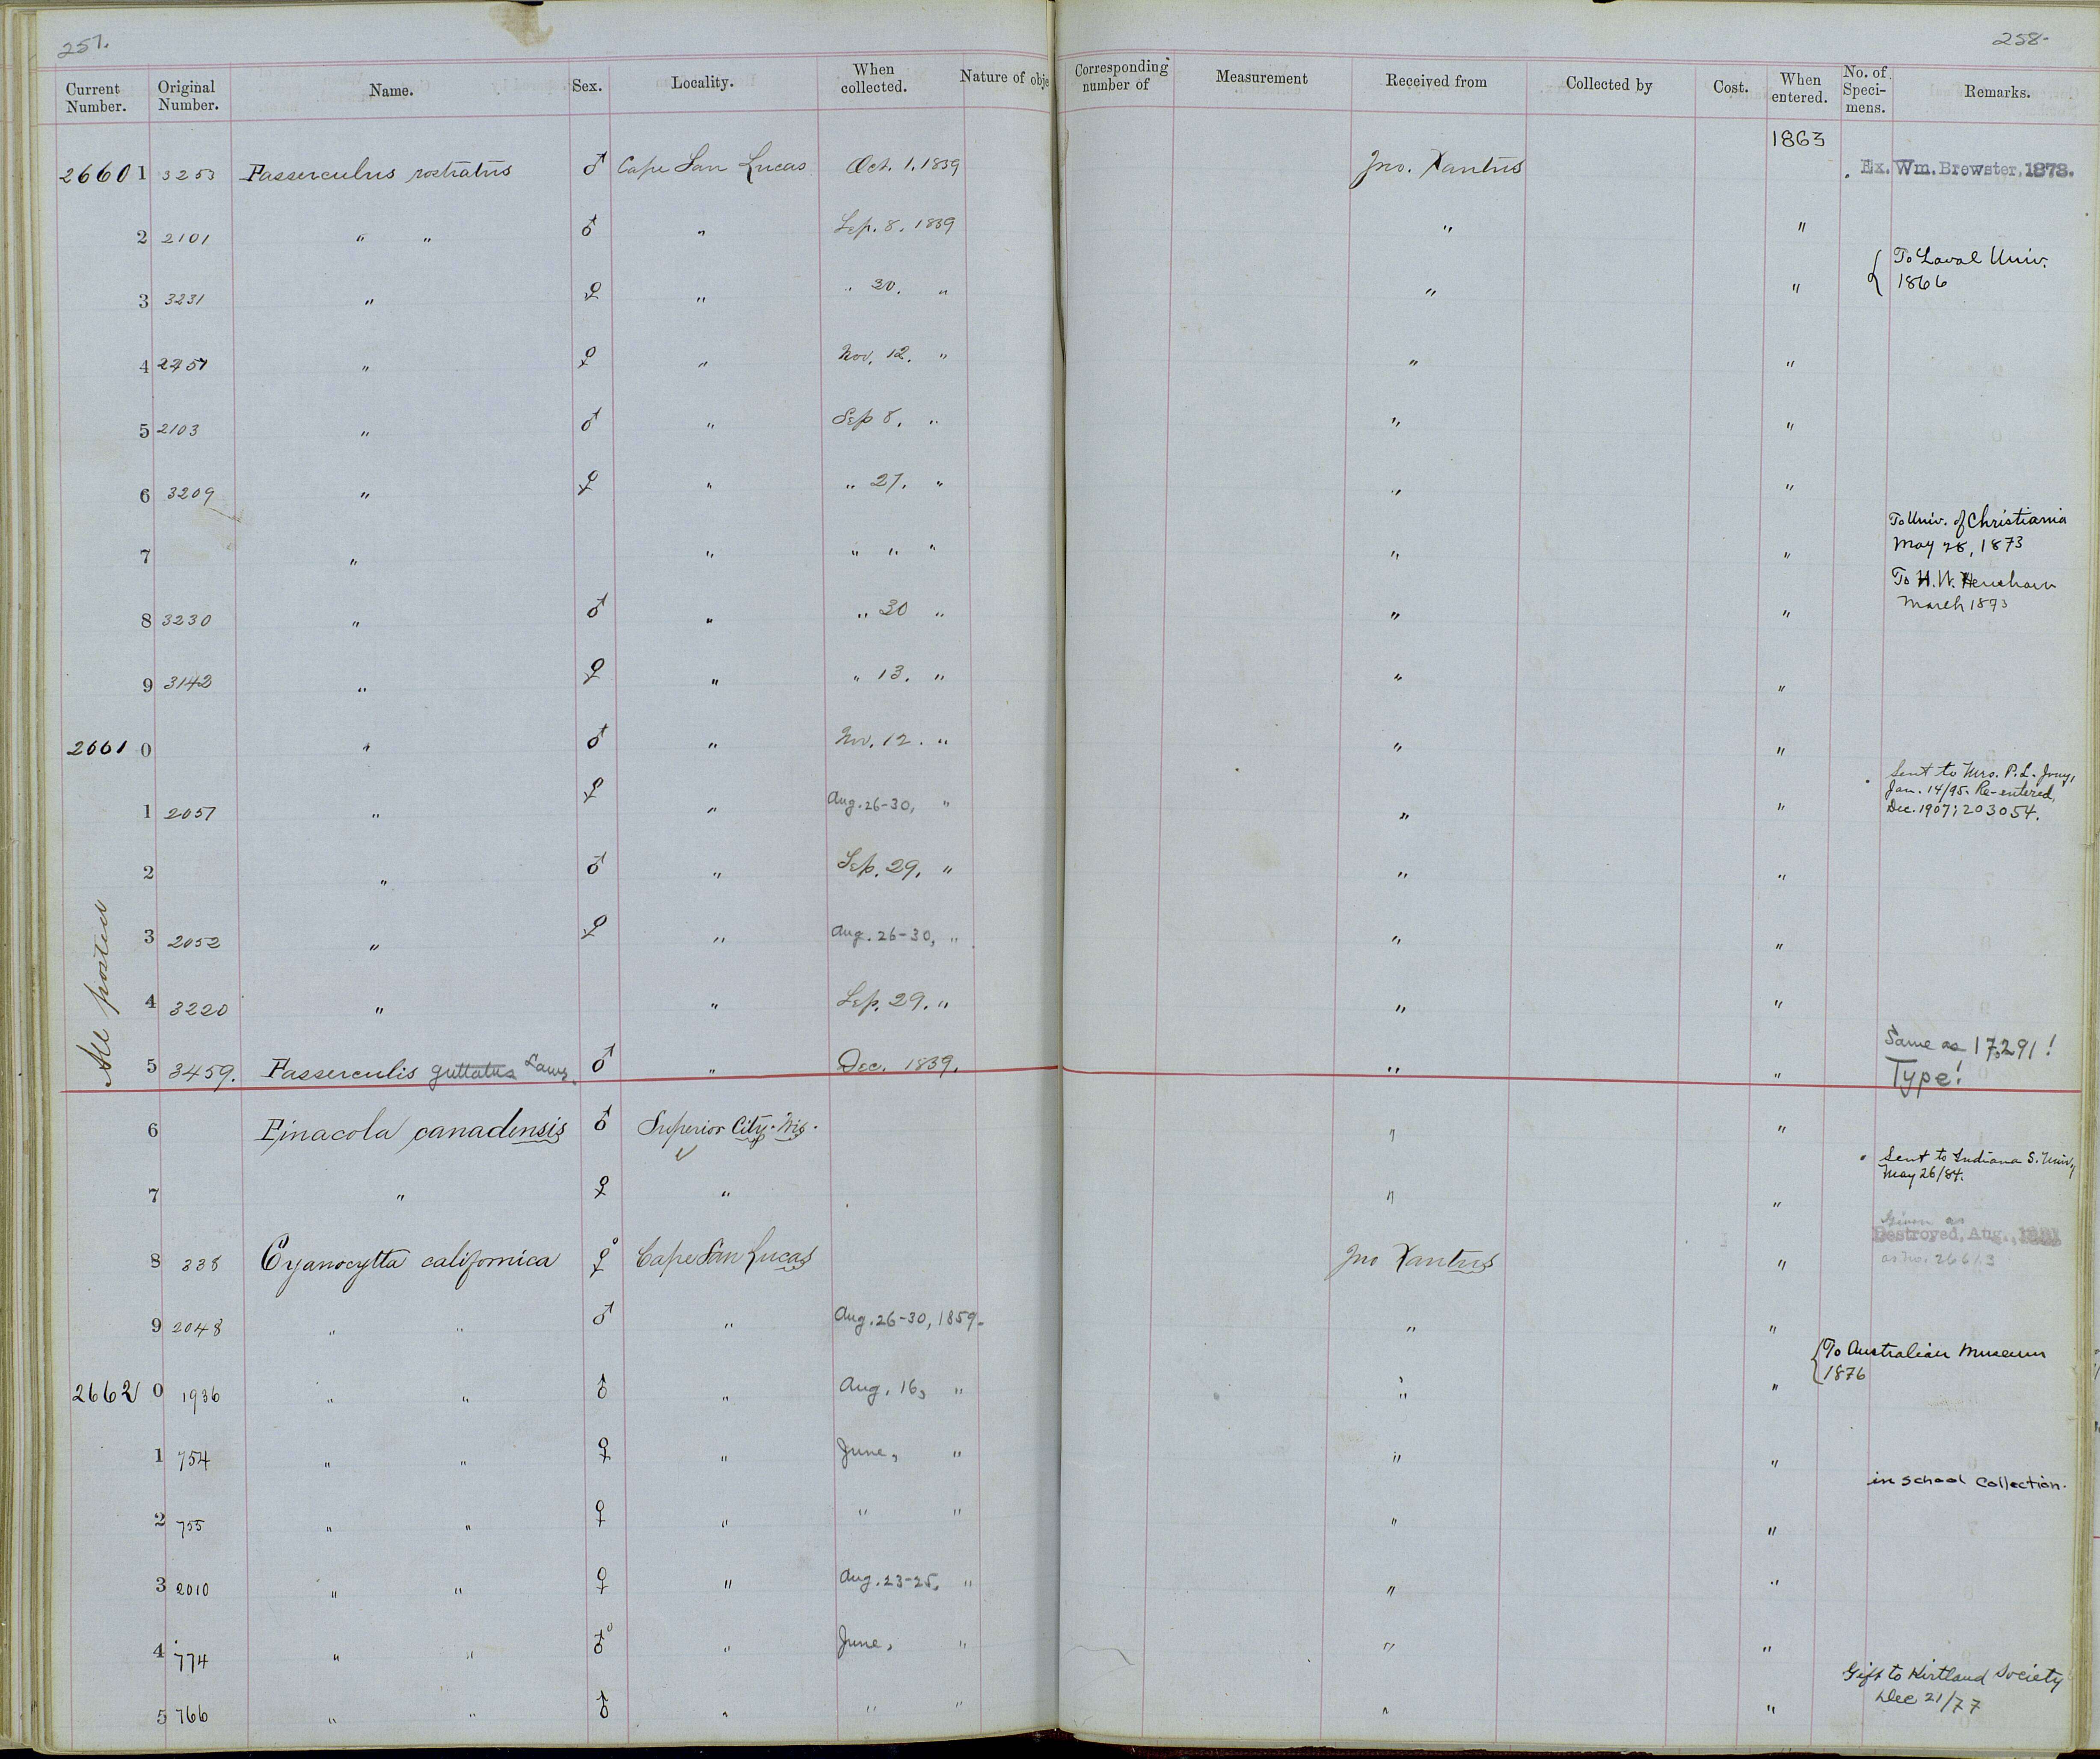 257.
258-
Current Number. Original Number. Name. Sex. Locality. When collected. Nature of obje Corresponding number of Measurement Received from Collected by Cost. When entered. No. of Speci-mens. Remarks.
1863
26601 3253 Passerculus rostratus ♂ Cape San Lucas Oct. 1. 1839 Jno. Xantus Ex. Wm. Brewster, 1878.
2 2101 " " ♂ " Sep. 8. 1839 " "
To Laval Univ.
1866
3 3231 " ♀ " " 30. " " "
4 2457 " ♀ " Nov. 12. " " "
5 2103 " ♂ " Sep 8. " " "
6 3209 " ♀ " " 27. " " "
To Univ. of Christiania
May 28, 1873
7 " " " " " " "
To H. W. Henshaw
March 1893
8 3230 " ♂ " " 30 " " "
9 3142 " ♀ " " 13. " " "
2661 0 " ♂ " Nov. 12. " " "
Sent to Mrs. P. L. Jouy,
Jan. 14/95. Re-entered,
Dec. 1907; 203054.
1 2057 " ♀ " Aug. 26-30, " " "
2 " ♂ " Sep. 29. " " "
3 2052 " ♀ " Aug. 26-30, " " "
4 3220 " " Sep. 29. " " "
All posted
5 3459. Passerculis guttatus Lawr. ♂ " Dec. 1839. " "
Same as 17,291!
Type!
6 Pinacola canadensis ♂ Superior City. Wis. " "
Sent to Indiana S. Univ,
May 26/84.
7 " ♀ " " "
8 338 Cyanocytta californica ♀ Cape San Lucas Jno Xantus "
Given as
Destroyed, Aug.,
as No. 26613
9 2048 " " ♂ " Aug. 26-30, 1859- " "
To Australian Museum
1876
2662 0 1936 " " ♂ " Aug. 16, " " "
1 754 " " ♀ " June, " " "
in School Collection.
2 755 " " ♀ " " " " "
3 2010 " " ♀ " Aug. 23-25, " " "
4 774 " " ♂ " June, " " "
Gift to Kirtland Society
Dec 21/77
5 766 " " ♂ " " " " "